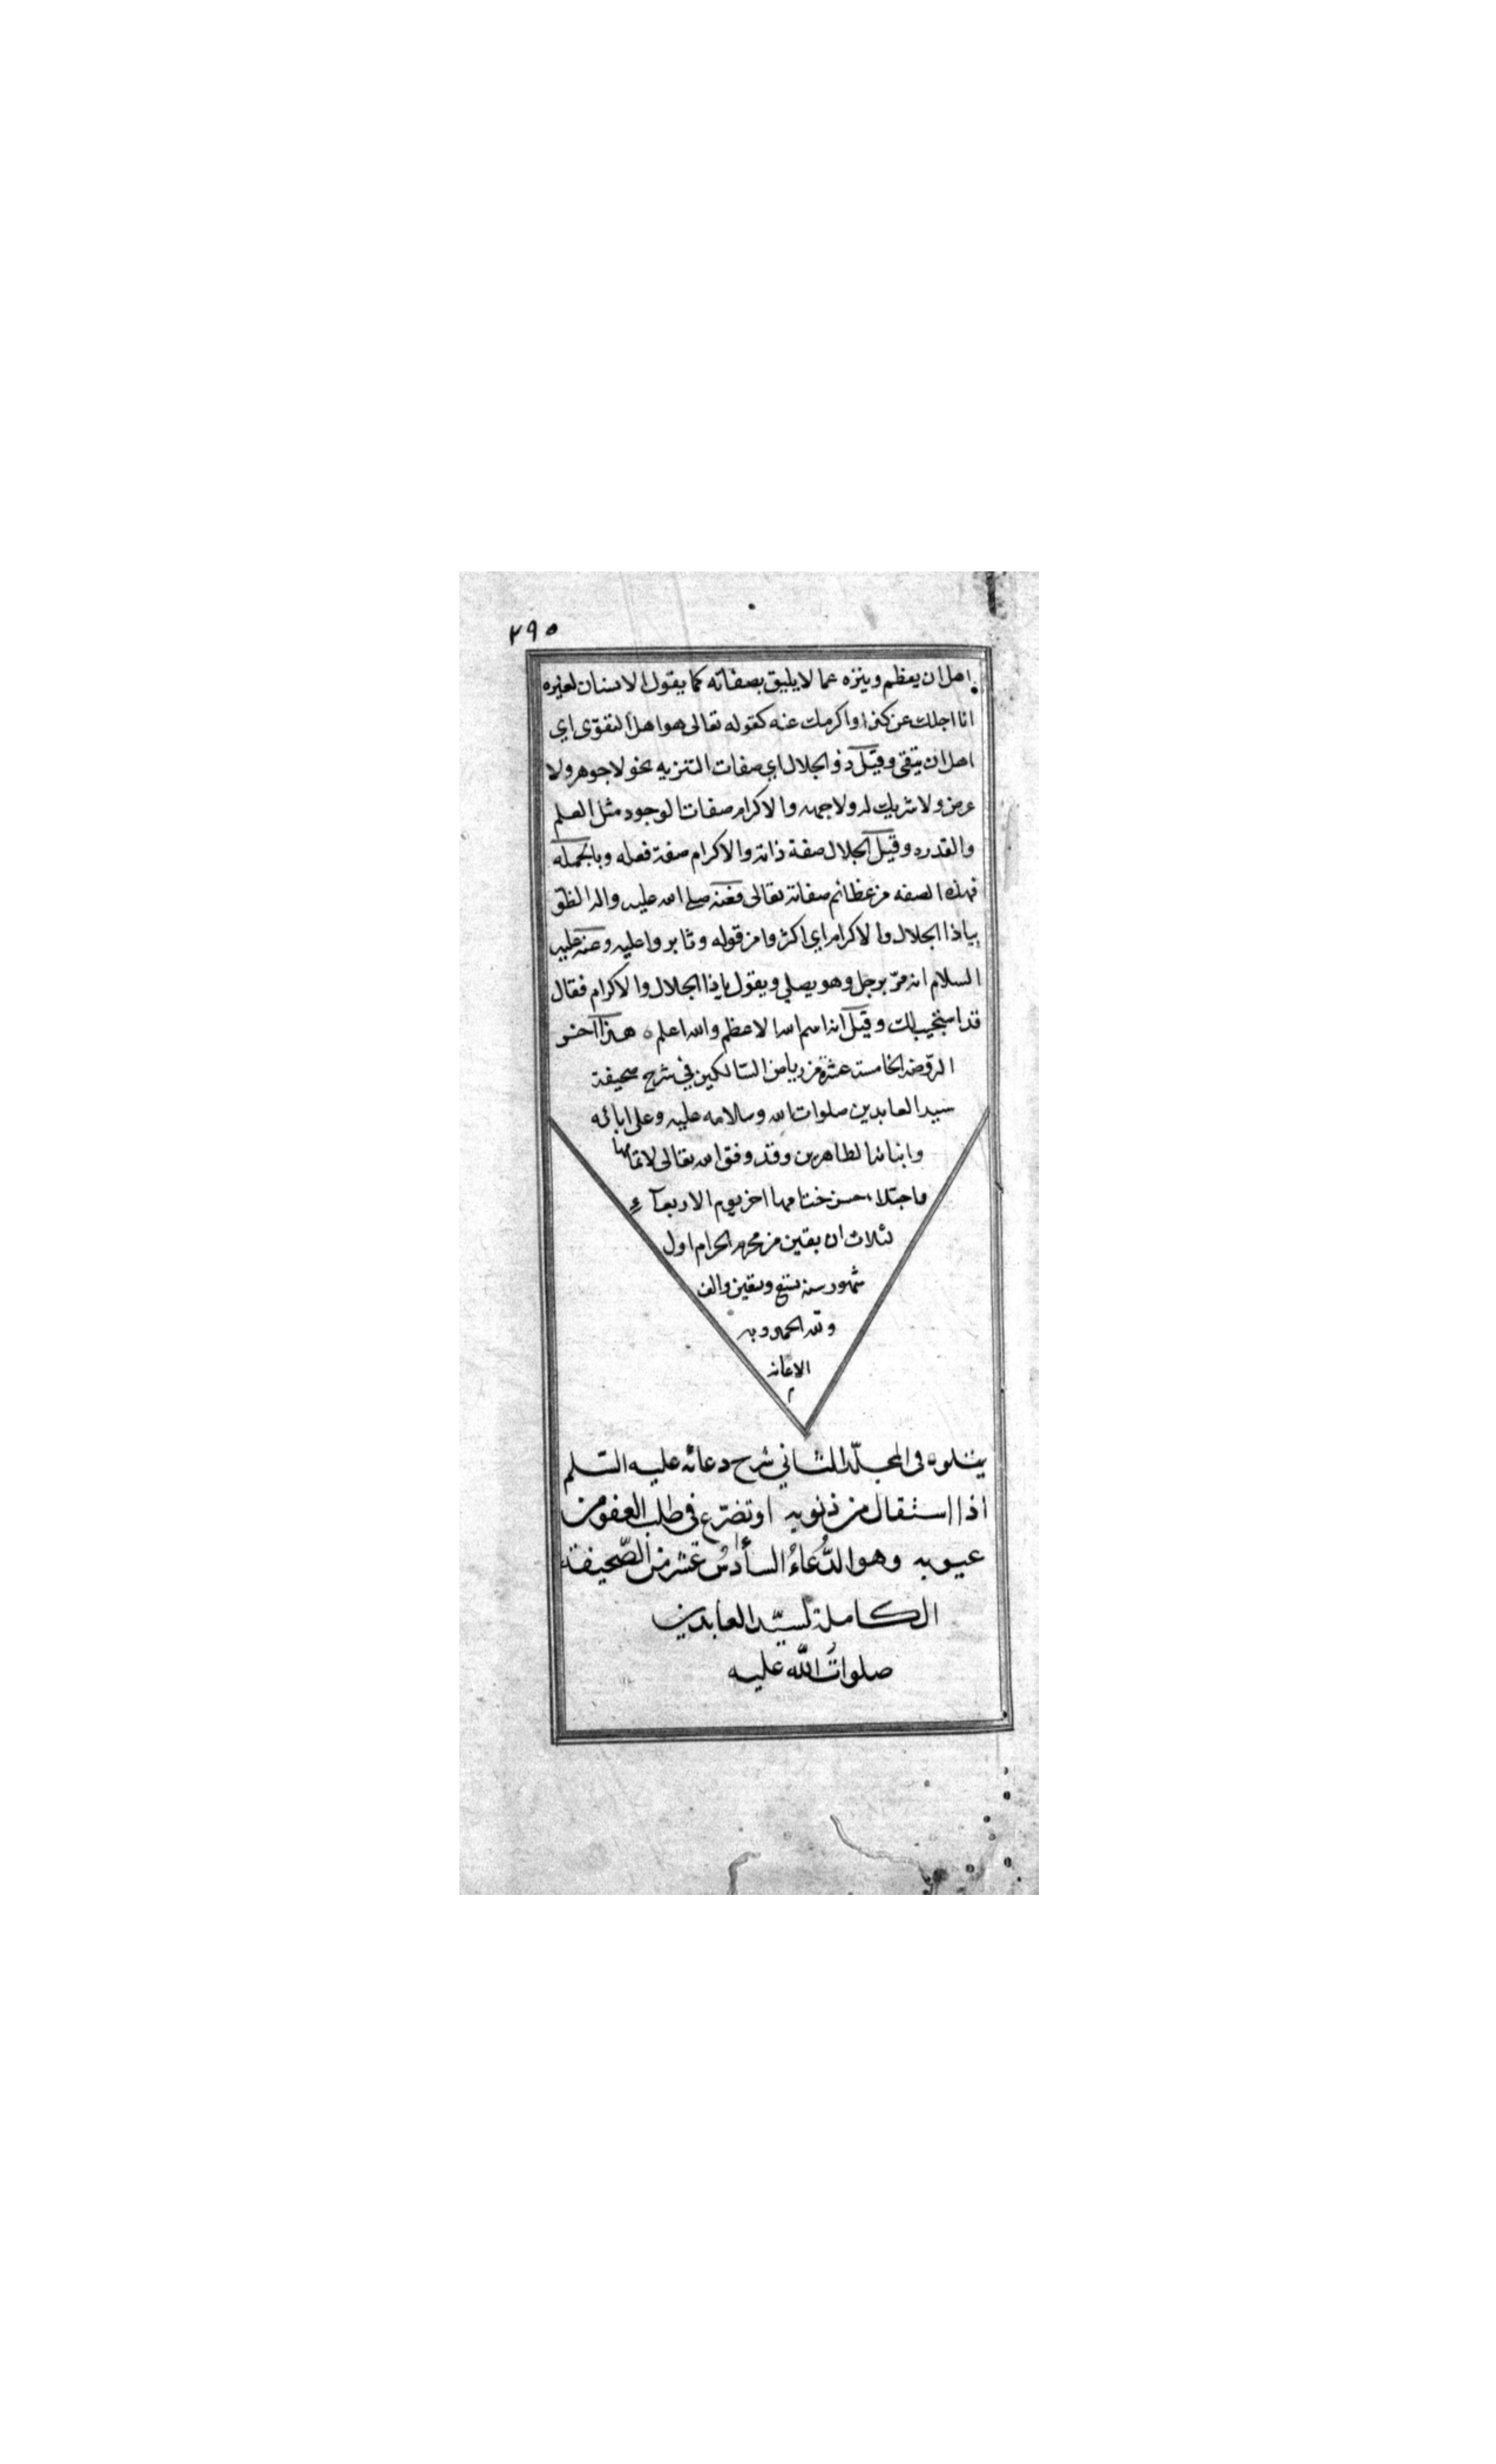 ٢٩٥
اهل ان يعظم وينزه عما لا يليق بصفاته كما يقول الانسان لغيره
انا اجلك عن كذا واكرمك عنه كقوله تعالى هو اهل التقوى اي
اهل ان يتقى وقيل ذو الجلال اي صفات التنزيه نحو لا جوهر ولا
عرض ولا شريك له ولا جهه والاكرام صفات الوجود مثل العلم
والقدره وقيل الجلال صفة ذاته والاكرام صفة فعله وبالجمله
فهذه الصفه من عظائم صفاته تعالى فعنه صلى الله عليه واله الظوّ
بياذا الجلال والاكرام اي اكثروا من قوله وثابروا عليه وعنه عليه
السلام انه مرّ برجل وهو يصلي ويقول ياذا الجلال والاكرام فقال
قد استجيب لك وقيل انه اسم الله الاعظم والله اعلم ه هذا آخر
الرّوضه الخامسة عشرة من رياض السّالكين في شرح صحيفة
سيد العابدين صلوات الله وسلامه عليه وعلى ابائه
وابنائه الطاهرين وقد وفق الله تعالى لاتمامها
واجتلاء حسن ختامها اخر يوم الاربعآء
لثلاث ان بقين من محرم الحرام اول
شهور سنه تسع وتسعين والف
ولله الحمد وبه
الاعانه
م
يتلوه فى المجلّد الثاني شرح دعائه عليه السّلم
اذا استقال من ذنوبه او تضرّع فى طلب العفو من
عيوبه وهو الدُّعاءُ السادسُ عشر من الصّحيفة
الكاملة لسيّد العابدين
صلواتُ اللّه عليه